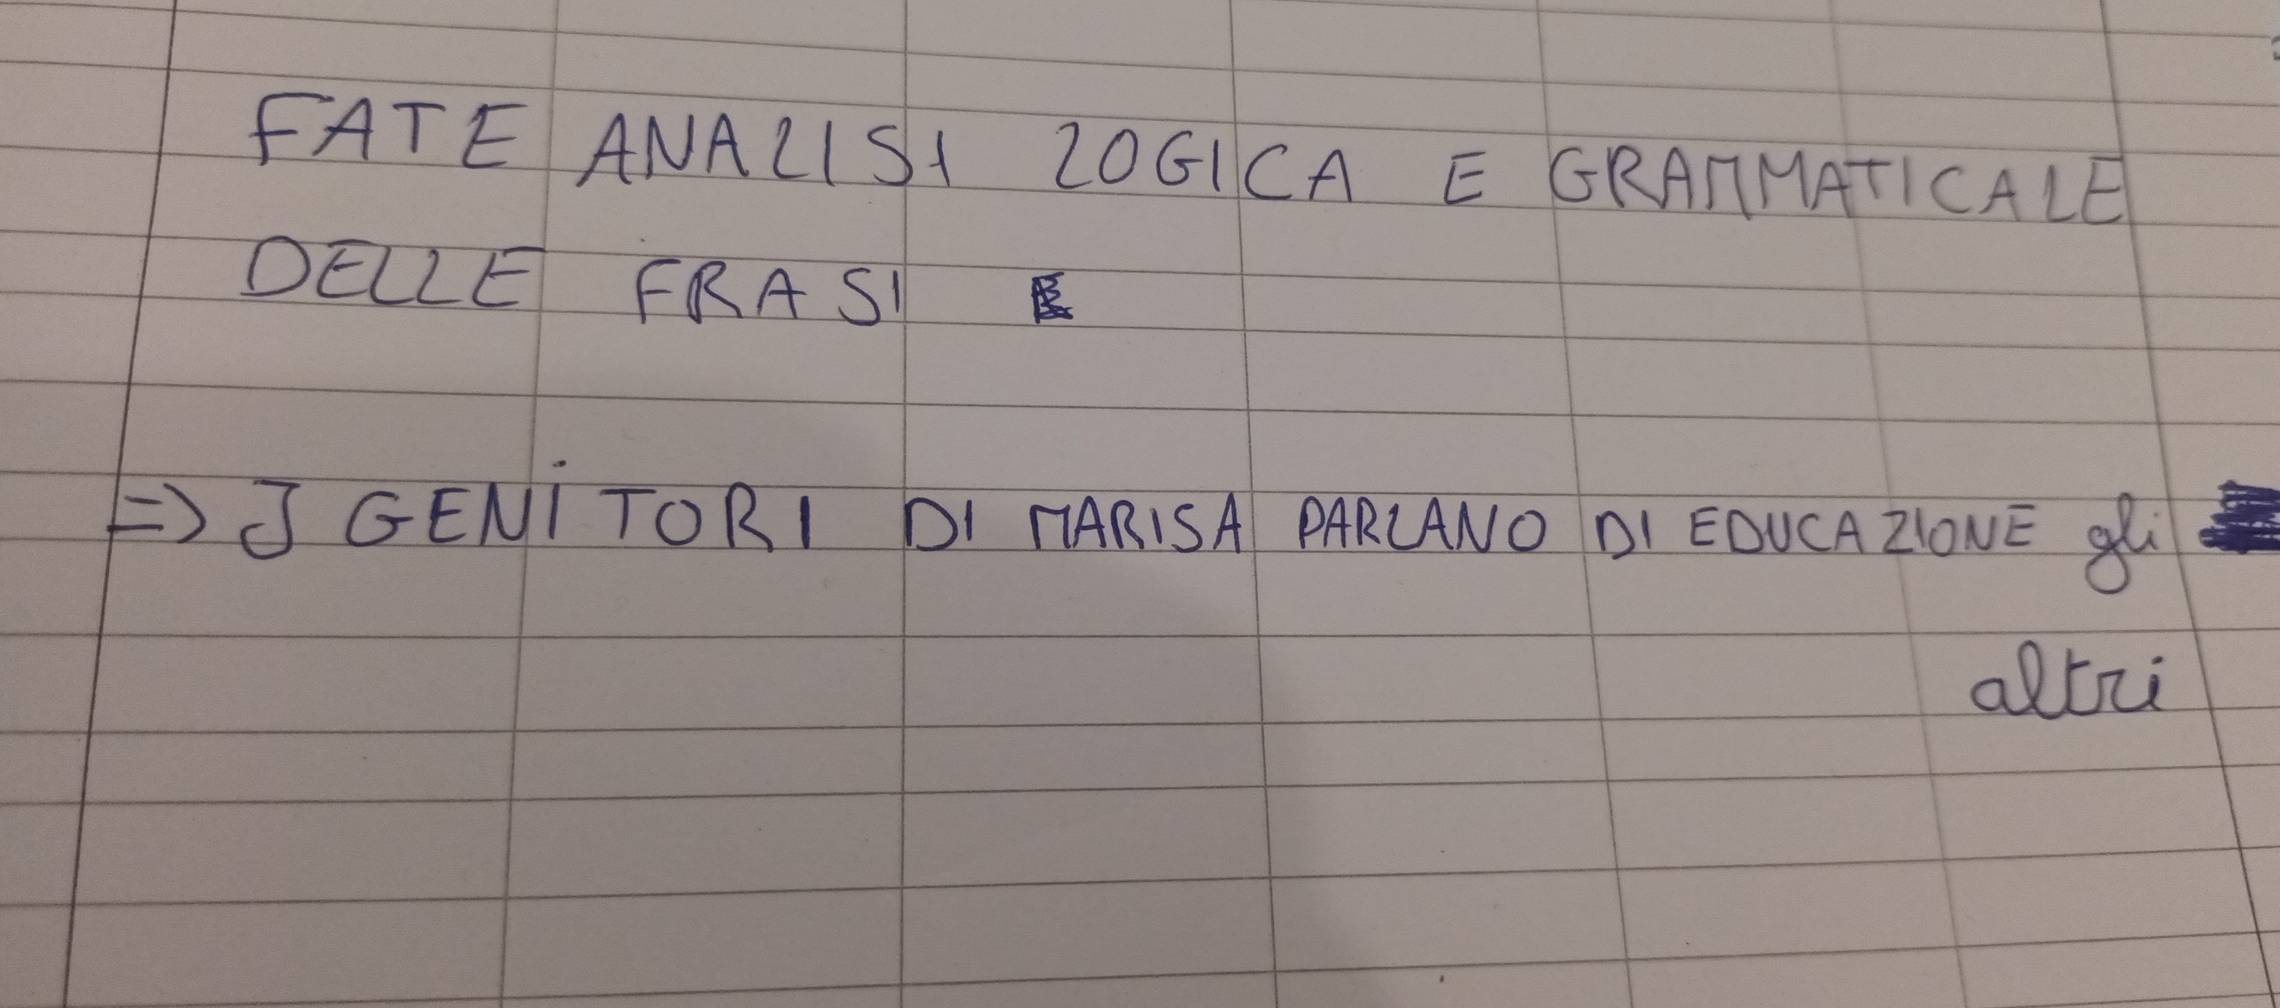 FATE ANALISI LOGICA E GRAMMATICALE
DELLE FRASI
=> I GENITORI DI MARISA PARLANO DI EDUCAZIONE gli
altri